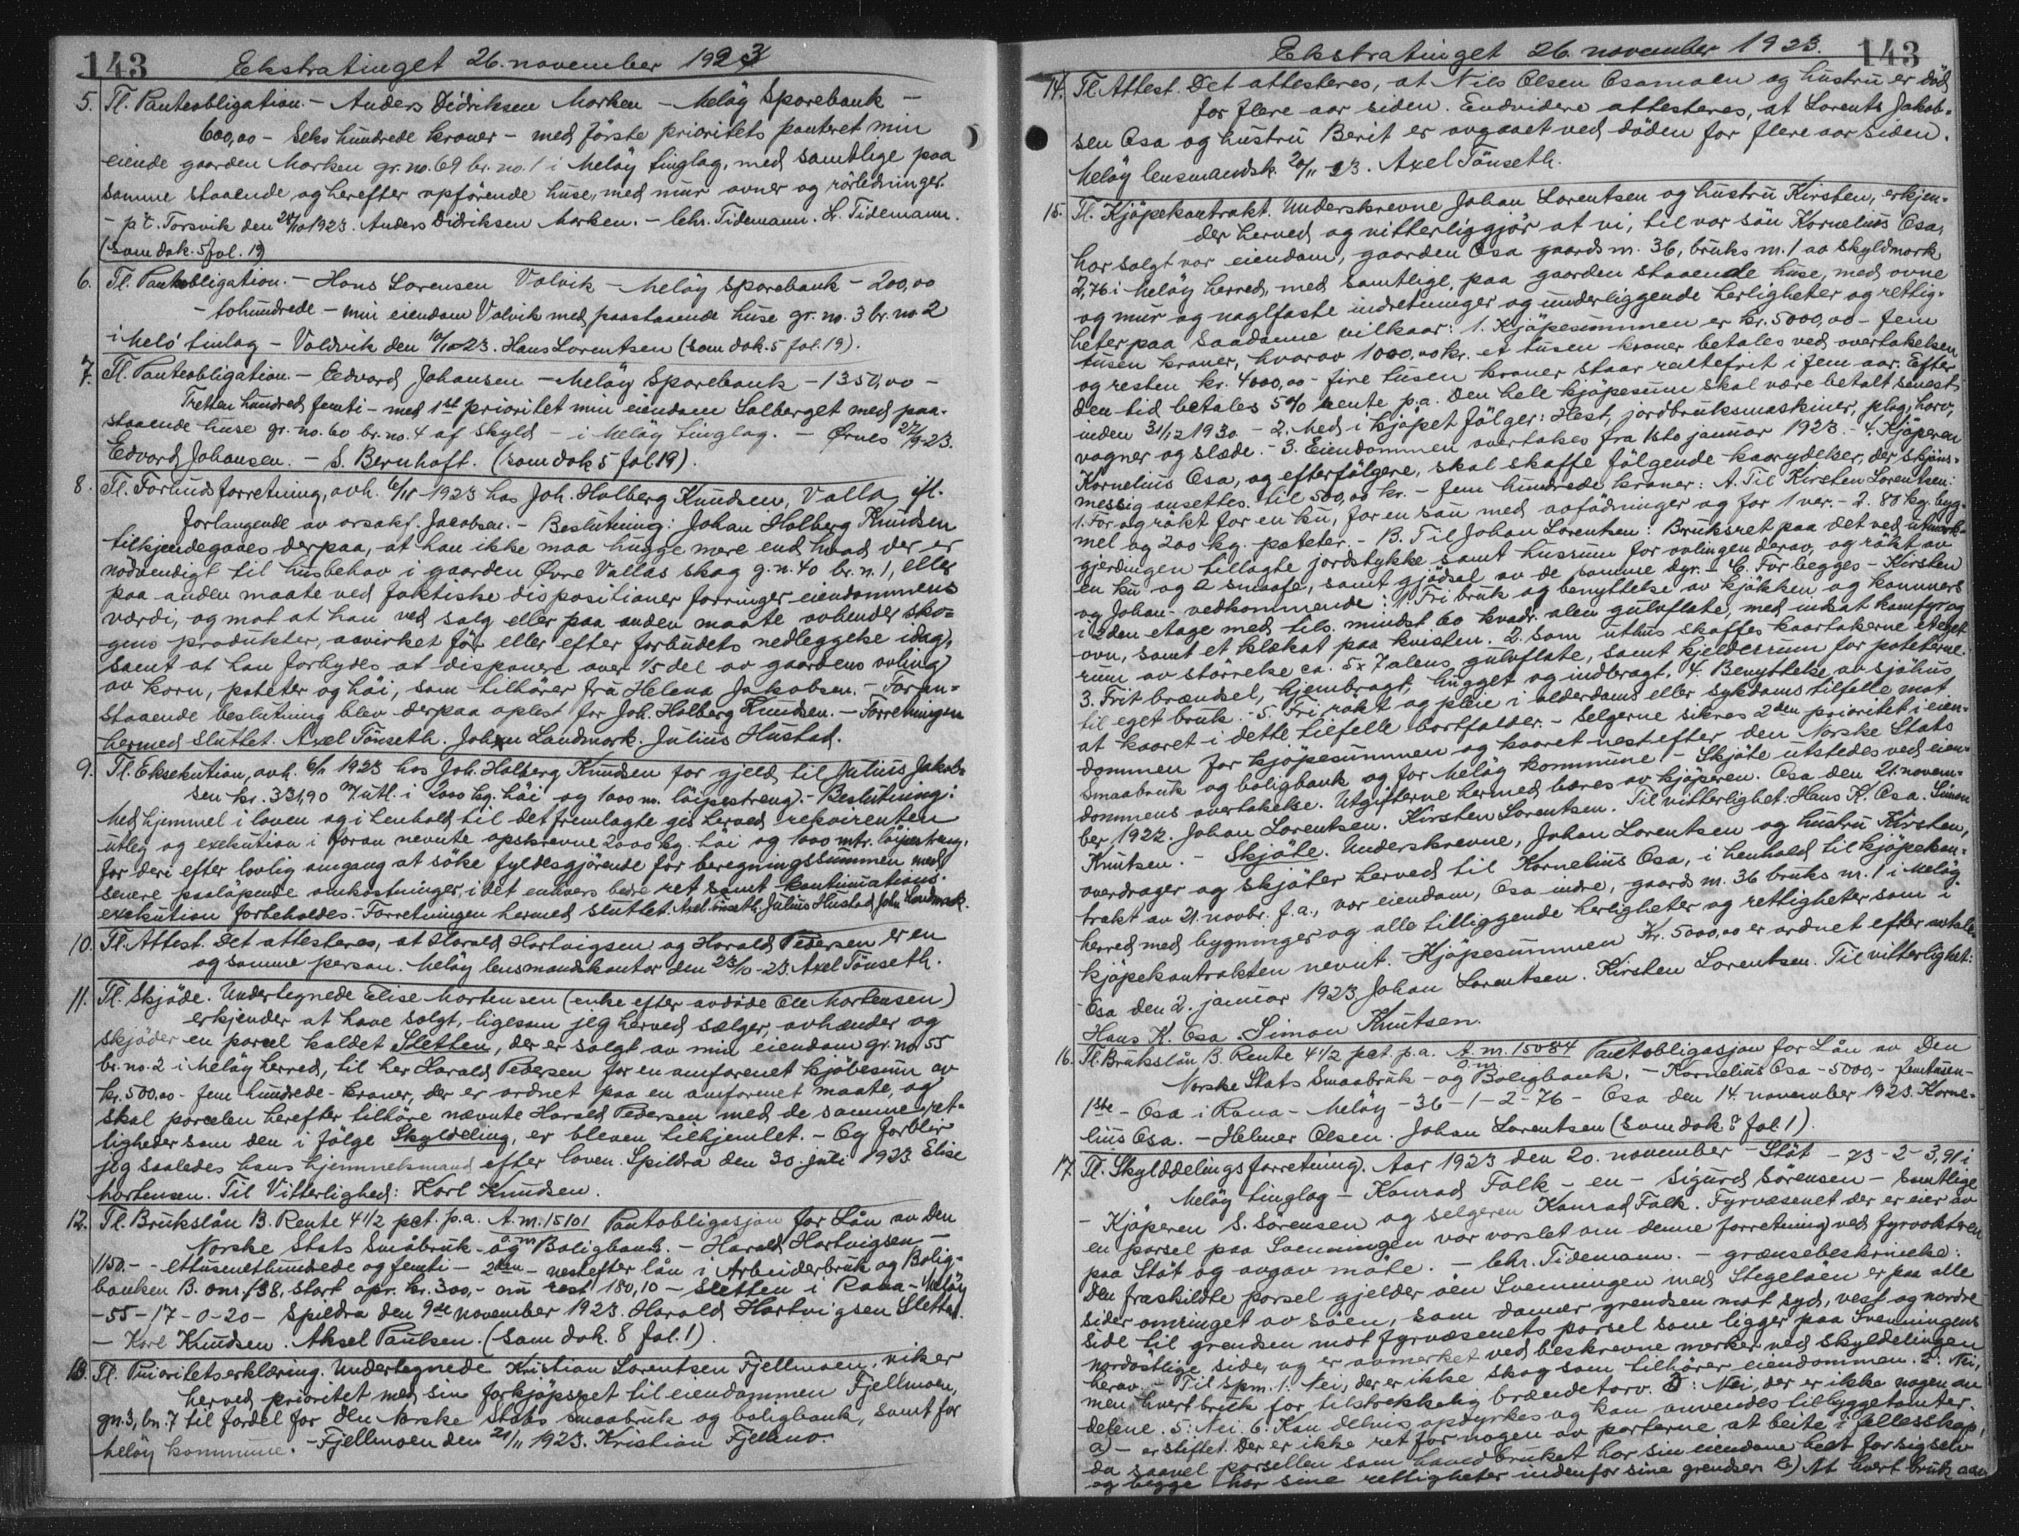 143 Ekstratinget 26. november 1923
5. Tl. Panteobligation. – Anders Didriksen Marken – Meløy Sparebank –
600,00 – Seks hundrede kroner – med første prioritets panteret min
eiende gaarden Marken gr. no. 69 br. no. 1 i Meløy tinglag, med samtlige paa
samme staaende og herefter opførende huse, med mur ovner og rørledninger.
– p.t. Torsvik den 20/10 1923. Anders Didriksen Marken. – Chr. Tidemann. L. Tidemann.
(som dok. 5 fol. 19)
6. Tl. Pantobligation. – Hans Lorensen Valvik – Meløy Sparebank – 200,00
– tohundrede – min eiendom Valvik med paastaaende huse gr. no. 3 br. no 2
i Melø tinlag – Valdvik den 10/10-23. Hans Lorentsen (som dok. 5 fol. 19).
7. Tl. Panteobligation. – Edvard Johansen – Meløy Sparebank – 1350,00 –
Tretten hundred femti – med 1st prioritet min eiendom Solberget med paa-
staaende huse gr. no. 60 br. no. 4 af skyld – i Meløy tinglag. – Ørnes 27/9-23.
Edvard Johansen. – S. Bernhoft. (som dok 5 fol 19).
8. Tl. Forbudsforretning, avh. 6/11-1923 hos Joh. Holberg Knudsen, Valla, ifl.
forlangende av orsakf. Jacobsen. – Beslutning: Johan Holberg Knudsen
tilkjendegaaes derpaa, at han ikke maa hugge mere end hvad der er
nødvendigt til husbehov i gaarden Øvre Vallas skog g. n. 40 br. n. 1, eller
paa anden maate ved faktiske dispositioner forringer eiendommens
værdi, og mot at han ved salg eller paa anden maate avhender sko-
gens produkter, aavirket før eller efter forbudets nedleggelse idag,
samt at han forbydes at disponere over 1/5 del av gaardens avling
av korn, poteter og høi, som tilhører fru Helena Jakobsen. – Foran-
staaende beslutning blev derpaa oplest for Joh. Holberg Knudsen. – Forretningen
hermed sluttet. Axel Tønseth. Johan Landmark. Julius Hustad.
9. Tl. Eksekution, avh. 6/11 1923 hos Joh. Holberg Knudsen for gjeld til Julius Jakob-
sen kr. 331,90 m/utl. i 2000 kg. høi og 1000 m. løipestreng. – Beslutning:
Med hjemmel i loven og i henhold til det fremlagte gis herved rekvirenten
utleg og exekution i foran nevnte opskrevne 2000 kg. høi og 1000 mtr. løipestreng,
for deri efter lovlig omgang at søke fyldesgjørende for beregningssummen med
senere paaløpende omkostninger, i det enhvers bedre ret samt kontinuations-
exekution forbeholdes. – Forretningen hermed sluttet. Axel Tønseth. Julius Hustad. John Landmark.
10. Tl. Attest. Det attesteres, at Harald Hartvigsen og Harald Pedersen er en
og samme person. Meløy lensmandskontor den 23/10-23. Axel Tønseth.
11. Tl. Skjøde. Undertegnede Elise Mortensen (enke efter avdøde Ole Mortensen)
erkjender at have solgt, ligesom jeg herved sælger, avhænder og
skjøder en parcel kaldet Sletten, der er solgt av min eiendom gr. no. 55
br. no. 2 i Meløy herred, til her Harald Pedersen for en omforenet kjøbesum av
kr. 500,00 – fem hundrede – kroner, der er ordnet paa en omforenet maate, og
skal porcelen herefter tilhøre nævnte Harald Pedersen med de samme ret-
ligheder som den i følge Skylddeling, er bleven tilhjemlet. – Og forblir
jeg saaledes hans hjemmelsmand efter loven. Spildra den 30. juli 1923. Elise
Mortensen. Til Vitterlighed: Karl Knudsen.
12. Tl. Brukslån B. Rente 4 1/2 pct. p.a. A. m. 15101 Pantobligasjon for Lån av Den
Norske Stats Småbruk- og Boligbank. – Harald Hartvigsen –
1150.– – Ettusenethundrede og femti – 2den – nestefter lån i Arbeiderbruk og Bolig-
banken B. onr. 138, stort opr. kr. 300,– nu rest 180,10 – Sletten i Rana – Meløy
– 55 – 17 – 0-20 – Spildra den 9de november 1923. Harald Hartvigsen Sletten.
– Karl Knudsen. Aksel Paulsen. (som dok. 8 fol. 1).
13. Tl. Prioritetserklæring. Undertegnede Kristian Lorentsen Fjellmoen, viker
herved prioritet med sin forkjøpsret til eiendommen Fjellmoen,
gn. 3, bn. 7 til fordel for Den Norske Stats smaabruk og boligbank, samt for
Meløy kommune. – Fjellmoen den 21/11 1923. Kristian Fjellmo.
Ekstratinget 26. november 1923. 143
14. Tl. Attest. Det attesteres, at Nils Olsen Osamoen og hustru er død
for flere aar siden. Endvidere attesteres, at Lorents Jakob-
sen Osa og hustru Berit er avgaaet ved døden for flere aar siden.
Meløy lensmandsk. 20/11-23. Axel Tønseth.
15. Tl. Kjøpekontrakt. Underskrevne Johan Lorentsen og hustru Kirsten, erkjen-
der herved og vitterliggjør at vi, til vor søn Kornelius Osa,
har solgt vor eiendom, gaarden Osa gaards nr. 36, bruks nr. 1 av skyldmark
2,76 i Meløy herred, med samtlige, paa gaarden staaende huse, med ovne
og mur og naglfaste indretninger og underliggende herligheter og rettig-
heter paa saadanne vilkaar: 1. Kjøpesummen er kr. 5000,00 – fem
tusen kroner, hvorav 1000,00 kr. et tusen kroner betales ved overtakelsen
og resten kr. 4000,00 – fire tusen kroner staar rentefrit i fem aar. Efter
den tid betales 5% rente p.a. Den hele kjøpesum skal være betalt senest
inden 31/12 1930 – 2. Med i kjøpet følger: Hest, jordbruksmaskiner, plog, harv,
vogner og slæde. – 3. Eiendommen overtakes fra 1ste januar 1923. – 4. Kjøperen
Kornelius Osa, og efterfølgere, skal skaffe følgende kaarydelser, der skjøns-
messig ansettes til 500,00 kr. – fem hundrede kroner: A. Til Kirsten Lorentsen:
1. For og røkt for en ku, for en sau med avfødninger og for 1 vær. – 2. 80 kg. byg-
mel og 200 kg. poteter. – B. Til Johan Lorentsen: Bruksret paa det ved utmark-
gjerdingen tillagte jordstykke samt husrum for avlingen derav, og røkt av
en ku og 2 smaafe, samt gjødsel av de samme dyr. – C. For begges – Kirsten
og Johan – vedkommende: 1. Fri bruk og benyttelse av kjøkken og kammers
i 2den etage med tils. mindst 60 kvadr. alen gulvflate, med indsat komfyr og
ovn, samt et klækot paa kvisten. 2. som uthus skaffes kaartakerne eget
rum av størrelse ca. 5 x 7 alens gulvflate, samt kjelderrum for poteterne.
3. Frit brændsel, hjembragt, hugget og indbragt. 4. Benyttelse av sjøhus
til eget bruk. – 5. Fri røkt og pleie i alderdoms eller sykdomstilfelle mot
at kaaret i dette tilfelle bortfalder. – Selgerne sikres 2den prioritet i eien-
dommen for kjøpesummen og kaaret nestefter den Norske Stats
Smaabruk og boligbank og for Meløy kommune. – Skjøte utstedes ved eien-
dommens overtakelse. Utgifterne hermed bæres av kjøperen. Osa den 21. novem-
ber 1922. Johan Lorentsen. Kirsten Lorentsen. Til vitterlighet: Hans K. Osa. Simon
Knutsen. – Skjøte. Underskrevne, Johan Lorentsen og hustru Kirsten,
overdrager og skjøter herved til Kornelius Osa, i henhold til kjøpekon-
trakt av 21. novbr. f.a., vor eiendom, Osa indre, gaards nr. 36 bruks nr. 1 i Meløy
herred med bygninger og alle tilliggende herligheter og rettigheter som i
kjøpekontrakten nevnt. Kjøpesummen Kr. 5000,00 er ordnet efter avtale.
Osa den 2. januar 1923. Johan Lorentsen. Kirsten Lorentsen. Til vitterlighet:
Hans K. Osa. Simon Knutsen.
16. Tl. Brukslån B. Rente 4 1/2 pct. p.a. A. m. 15084 Pantobligasjon for Lån av Den
Norske Stats Smaabruk- og Boligbank. – Kornelius Osa – 5000,– Femtusen –
1ste – Osa i Rana – Meløy – 36 – 1 – 2-76 – Osa den 14. november 1923. Korne-
lius Osa. – Helmer Olsen. Johan Lorentsen (som dok 8 fol 1).
17. Tl. Skylddelingsforretning. Aar 1923 den 20. november – Støt – 73 – 2 – 3,91 i
Meløy tinglag – Konrad Falk – en – Sigurd Sørensen – Samtlige
– Kjøperen S. Sørensen og selgeren Konrad Falk. Fyrvæsenet der er eier av
en parsel paa Svenningen var varslet om denne forretning ved fyrvokteren
paa Støt og avgav møte. – Chr. Tidemann. – grænsebeskrivelse:
Den fraskildte parsel gjelder øen Svenningen med Stegeløen er paa alle
sider omringet av søen, som danner grendsen mot syd, vest og nordre
side til grendsen mot fyrvæsenets parsel som ligger paa Svenningens
nordøstlige side, og er avmerket ved beskrevne merker ved skyldelingen
herav. – Til spm. 1: Nei, der er ikke skog som tilhører eiendommen. 2: Nei,
men hvert bruk for tilstrekkelig brændetorv. 3: Nei, der er ikke nogen av
delene. 5: Nei. 6. Kan delvis opdyrkes og kan anvendes til byggetomter.
a) – er sløifet. Der er ikke ret for nogen av parterne at beite i fællesskap,
da saavel parsellen som hovedbruket har sin eiendom helt for sig selv
og begge har sine rettigheter indenfor sine grendser. b) At hvert bruk